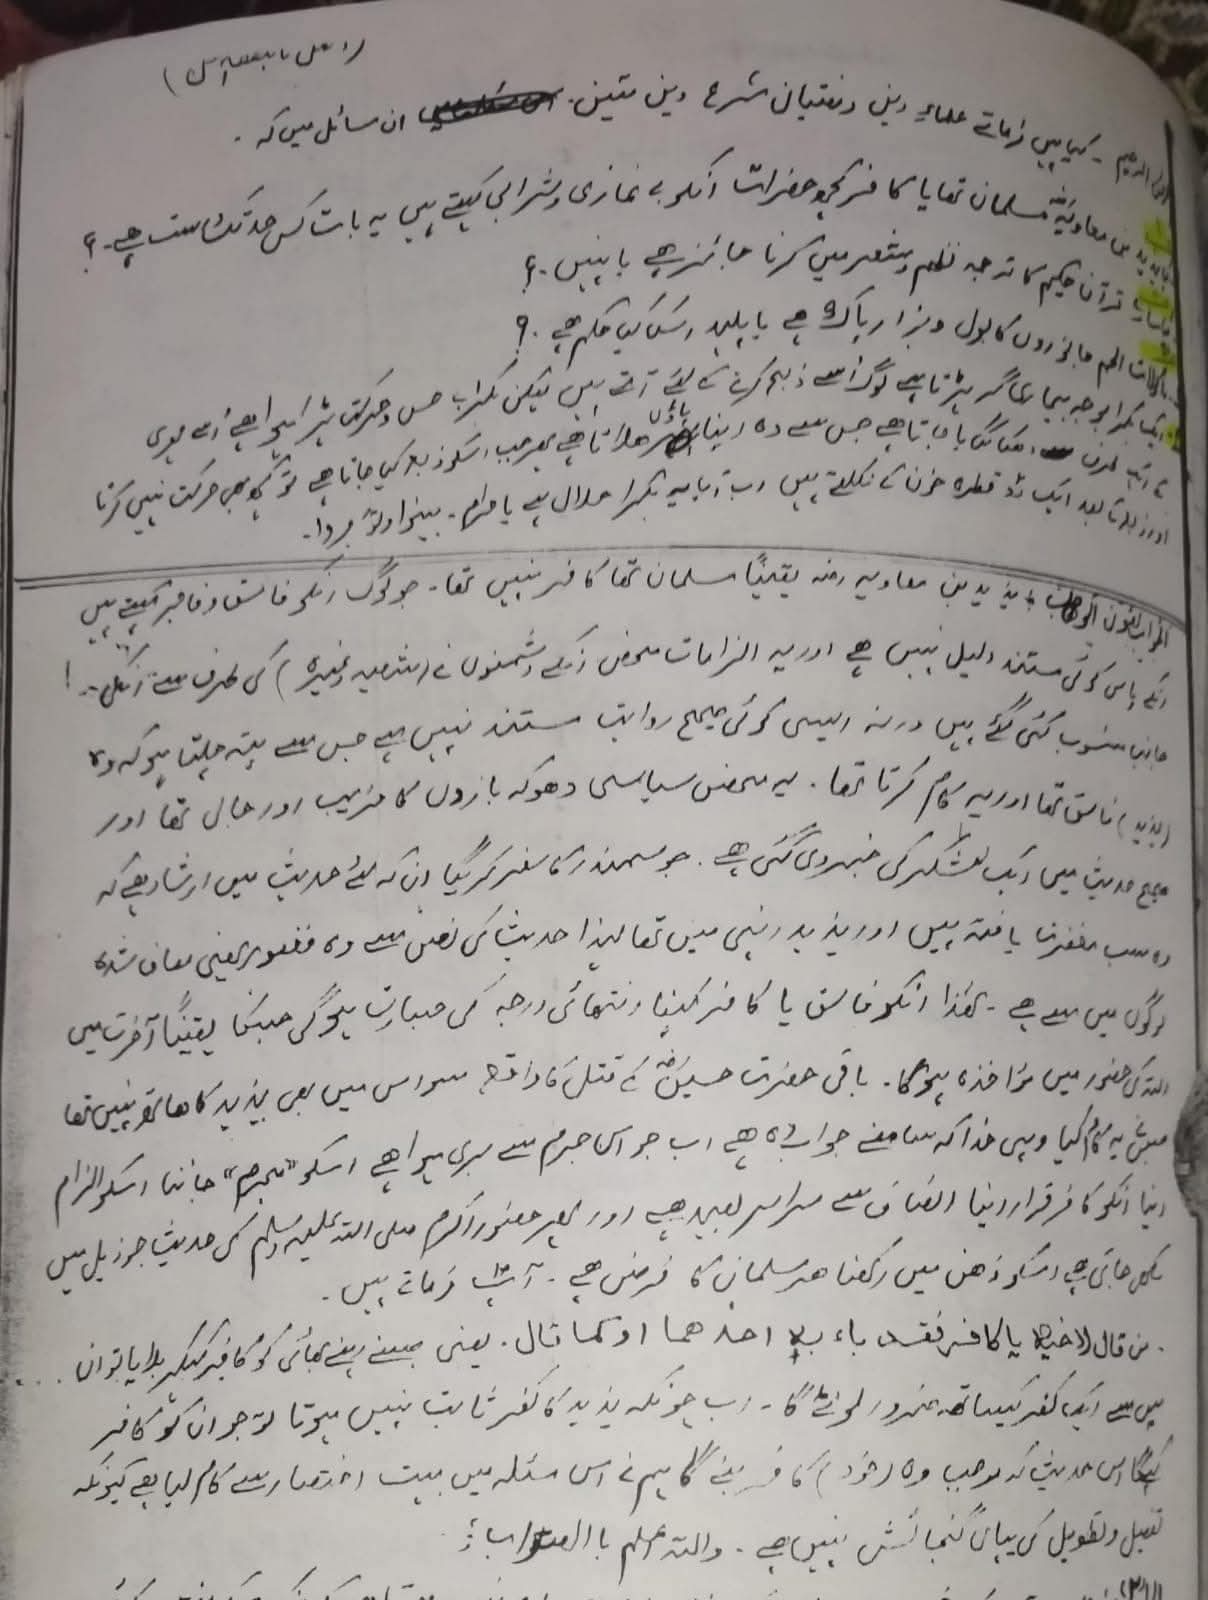 الرحیم ۔ کیا ہیں فرماتے علماءِ دین ومفتیان شرح دین متین ۔ ان مسائل میں کہ ۔
یزید بن معاویہؓ مسلمان تھا یا کافر کچھ حضرات انکو بے نمازی وشرابی کہتے ہیں یہ بات کس حد تک درست ہے ۔ ؟
قرآن حکیم کا ترجمہ نظم وشعر میں کرنا جائز ہے یا نہیں ۔ ؟
ماکولات اللحم جانوروں کا بول وبراز پاک ہے یا پلید اسکا کیا حکم ہے ۔ ؟
ایک بکرا بوجہ بیماری گر پڑتا ہے لوگ اُسے ذبح کرنے کے لئے آتے ہیں لیکن بکرا بے حس وحرکت پڑا ہوا ہے اُسے چھری
جاتا ہے جس سے وہ اپنا پاؤں ہلاتا ہے پھر جب اسکو ذبح کیا جاتا ہے تو کچھ بھی حرکت نہیں کرتا
اور ذبح کے بعد ایک دو قطرہ خون کے نکلتے ہیں اب آیا یہ بکرا حلال ہے یا حرام ۔ بینوا وتوجروا ۔
الجواب بعون الوھاب یزید بن معاویہ رضہ یقینًا مسلمان تھا کافر نہیں تھا ۔ جو لوگ انکو فاسق وفاجر کہتے ہیں
انکے پاس کوئی مستند دلیل نہیں ہے اور یہ الزامات محض انکے دشمنوں نے (شیعہ وغیرہ) کی طرف سے انکی
جانب منسوب کئی گئے ہیں ورنہ ایسی کوئی صحیح روایت مستند نہیں ہے جس سے پتہ چلتا ہو کہ وہ
(یزید) فاسق تھا اور یہ کام کرتا تھا ۔ یہ محض سیاسی دھوکہ بازوں کا فریب اور جال تھا اور
صحیح حدیث میں ایک لشکر کی خبر دی گئی ہے ۔ جو سمندر کا سفر کریگا ان کے لئے حدیث میں ارشاد ہے کہ
وہ سب مغفرت یافتہ ہیں اور یزید انہی میں تھا لہذا حدیث کی نص سے وہ مغفور یعنی معاف شدہ
لوگوں میں سے ہے ۔ لھٰذا انکو فاسق یا کافر کہنا انتہائی درجہ کی جسارت ہوگی جسکا یقینًا آخرت میں
اللہ کی حضور میں مؤاخذہ ہوگا ۔ باقی حضرت حسینؓ کے قتل کا واقعہ سو اس میں بھی یزید کا ھاتھ نہیں تھا
جس نے یہ کام کیا وہی خدا کے سامنے جوابدہ ہے اب جو اس جرم سے بری ہوا ہے اسکو "مجرم" جاننا اسکو الزام
دینا انکو کافر قرار دینا انصاف سے سراسر بعید ھے اور پھر حضور اکرم صلی اللہ علیہ وسلم کی حدیث جو ذیل میں
لکھی جاتی ہے اسکو ذھن میں رکھنا ھر مسلمان کا فرض ھے ۔ آپؐ فرماتے ہیں ۔
من قال لاخیہ یا کافر فقد باء بہ احدھما او کما قال ۔ یعنی جسنے اپنے بھائی کو کافر کہکر بلایا تو ان
میں سے ایک کفر کیساتھ ضرور لوٹے گا ۔ اب چونکہ یزید کا کفر ثابت نہیں ہوتا تو جو ان کو کافر
کہیگا اس حدیث کے موجب وہ (خود) کافر بنے گا ہم نے اس مسئلہ میں بہت اختصار سے کام لیا ہے کیونکہ
تفصیل وتطویل کی یہاں گنجائش نہیں ہے ۔ واللہ اعلم باالصواب ؛